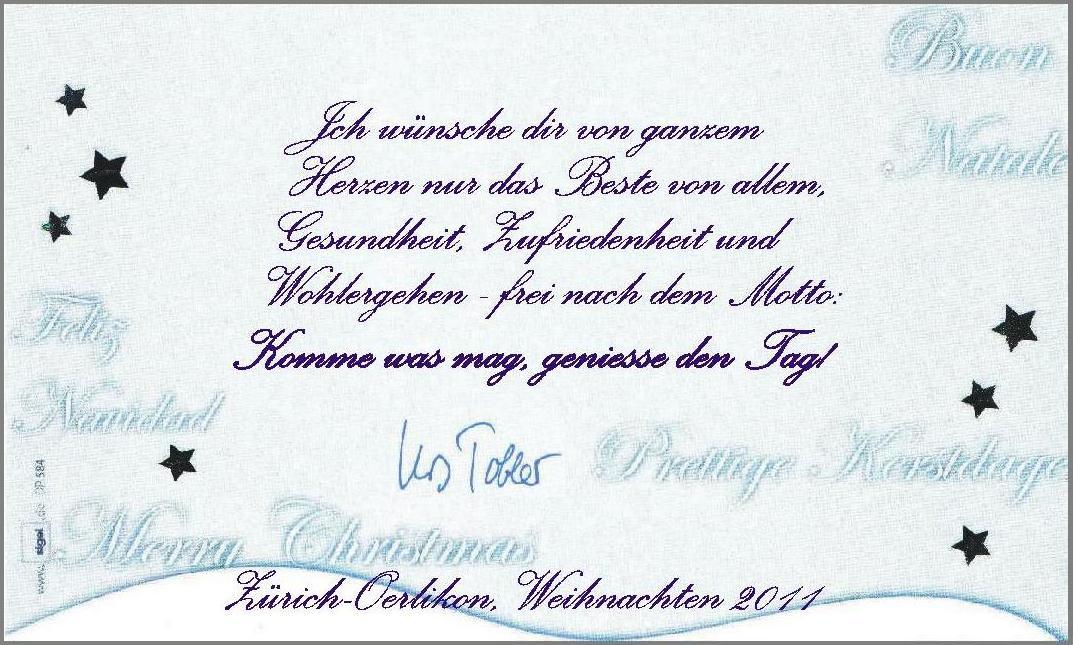 Buon
Natale
Ich wünsche dir von ganzem
Herzen nur das Beste von allem,
Gesundheit, Zufriedenheit und
Wohlergehen - frei nach dem Motto:
Komme was mag, geniesse den Tag!
Feliz
Navidad
Urs Tobler
Prettige Kerstdage
Merry Christmas
Zürich-Oerlikon, Weihnachten 2011
www.sigel.de DP 584